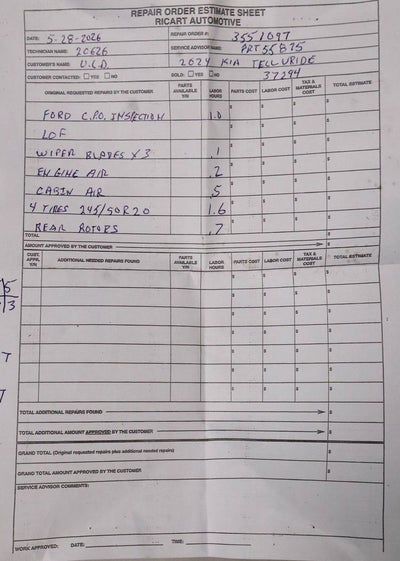 REPAIR ORDER ESTIMATE SHEET
RICART AUTOMOTIVE
DATE: 5-28-2026 REPAIR ORDER #: 3551097
TECHNICIAN NAME: 20626 SERVICE ADVISOR NAME: PRT55875
CUSTOMER'S NAME: U.C.D. 2024 KIA TELLURIDE
CUSTOMER CONTACTED: ☐ YES ☐ NO SOLD: ☐ YES ☐ NO 37294
ORIGINAL REQUESTED REPAIRS BY THE CUSTOMER PARTS AVAILABLE Y/N LABOR HOURS PARTS COST LABOR COST TAX & MATERIALS COST TOTAL ESTIMATE
FORD C.P.O. INSPECTION 1.0 $ $ $ $
LOF $ $ $ $
WIPER BLADES X3 .1 $ $ $ $
ENGINE AIR .2 $ $ $ $
CABIN AIR .5 $ $ $ $
4 TIRES 245/50R20 1.6 $ $ $ $
REAR ROTORS .7 $ $ $ $
TOTAL $
AMOUNT APPROVED BY THE CUSTOMER $
CUST. APPR. Y/N ADDITIONAL NEEDED REPAIRS FOUND PARTS AVAILABLE Y/N LABOR HOURS PARTS COST LABOR COST TAX & MATERIALS COST TOTAL ESTIMATE
$ $ $ $
$ $ $ $
$ $ $ $
$ $ $ $
$ $ $ $
$ $ $ $
$ $ $ $
TOTAL ADDITIONAL REPAIRS FOUND $
TOTAL ADDITIONAL AMOUNT APPROVED BY THE CUSTOMER $
GRAND TOTAL (Original requested repairs plus additional needed repairs) $
GRAND TOTAL AMOUNT APPROVED BY THE CUSTOMER $
SERVICE ADVISOR COMMENTS:
WORK APPROVED: DATE: TIME: